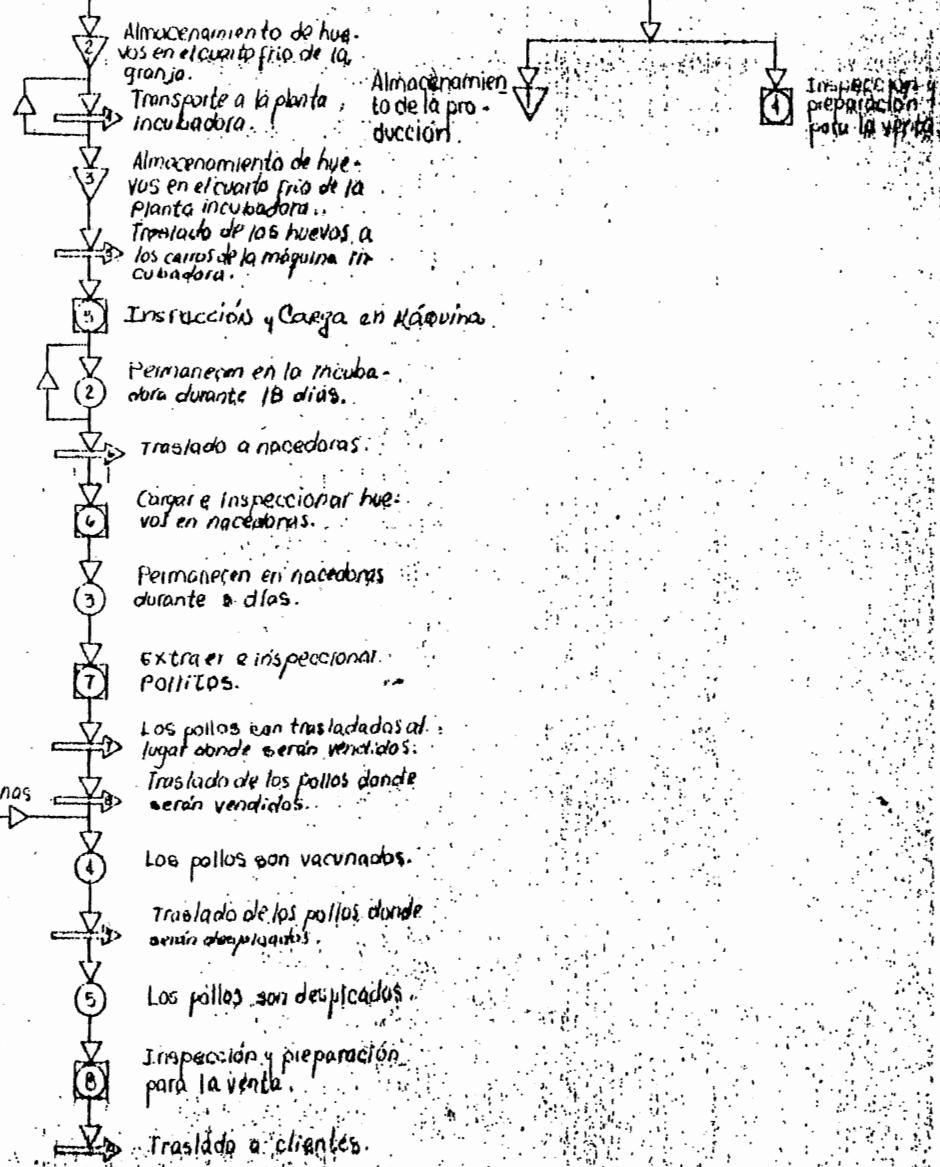 2
Almacenamiento de hue-
vos en el cuarto frio de la
granja.
4
Transporte a la planta
incubadora.
3
Almacenamiento de hue-
vos en el cuarto frio de la
Planta incubadora.
5
Traslado de los huevos a
los carros de la máquina in
cubadora.
5
Insrucción y Carga en Máquina
2
Permanecen en la incuba-
dora durante 18 días.
6
Traslado a nacedoras.
6
Cargar e inspeccionar hue-
vos en nacedoras.
3
Permanecen en nacedoras
durante días.
7
Extraer e inspeccionar
Pollitos.
7
Los pollos son trasladados al
lugar donde serán vendidos.
8
Traslado de los pollos donde
serán vendidos.
nas
4
Los pollos son vacunados.
Traslado de los pollos donde
serán
5
Los pollos son despicados.
8
Inspección y preparación
para la venta.
Traslado a clientes.
Almacenamien
to de la pro-
ducción.
1
4
Inspección y
preparación
para la venta